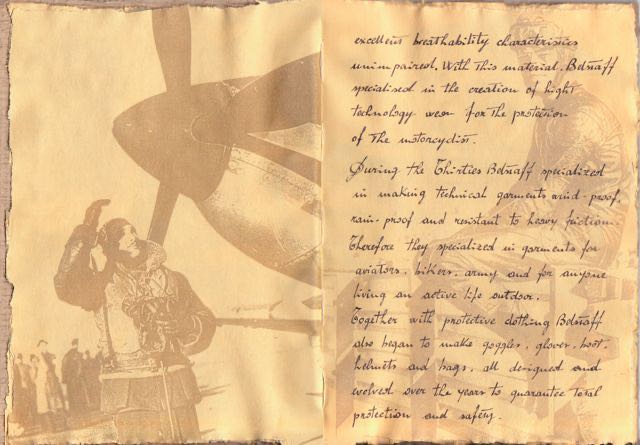 excellent breathability characteristics
unimpaired. With this material. Belstaff
specialised in the creation of hight
technology wear for the protection
of the motorcyclist.
During the Thirties Belstaff specialized
in making technical garments wind-proof,
rain-proof and resistant to heavy friction.
Therefore they specialized in garments for
aviators, bikers, army and for anyone
living an active life outdoor.
Together with protective clothing Belstaff
also began to make goggles, gloves, boot,
helmets and bags, all designed and
evolved over the years to guarantee total
protection and safety.